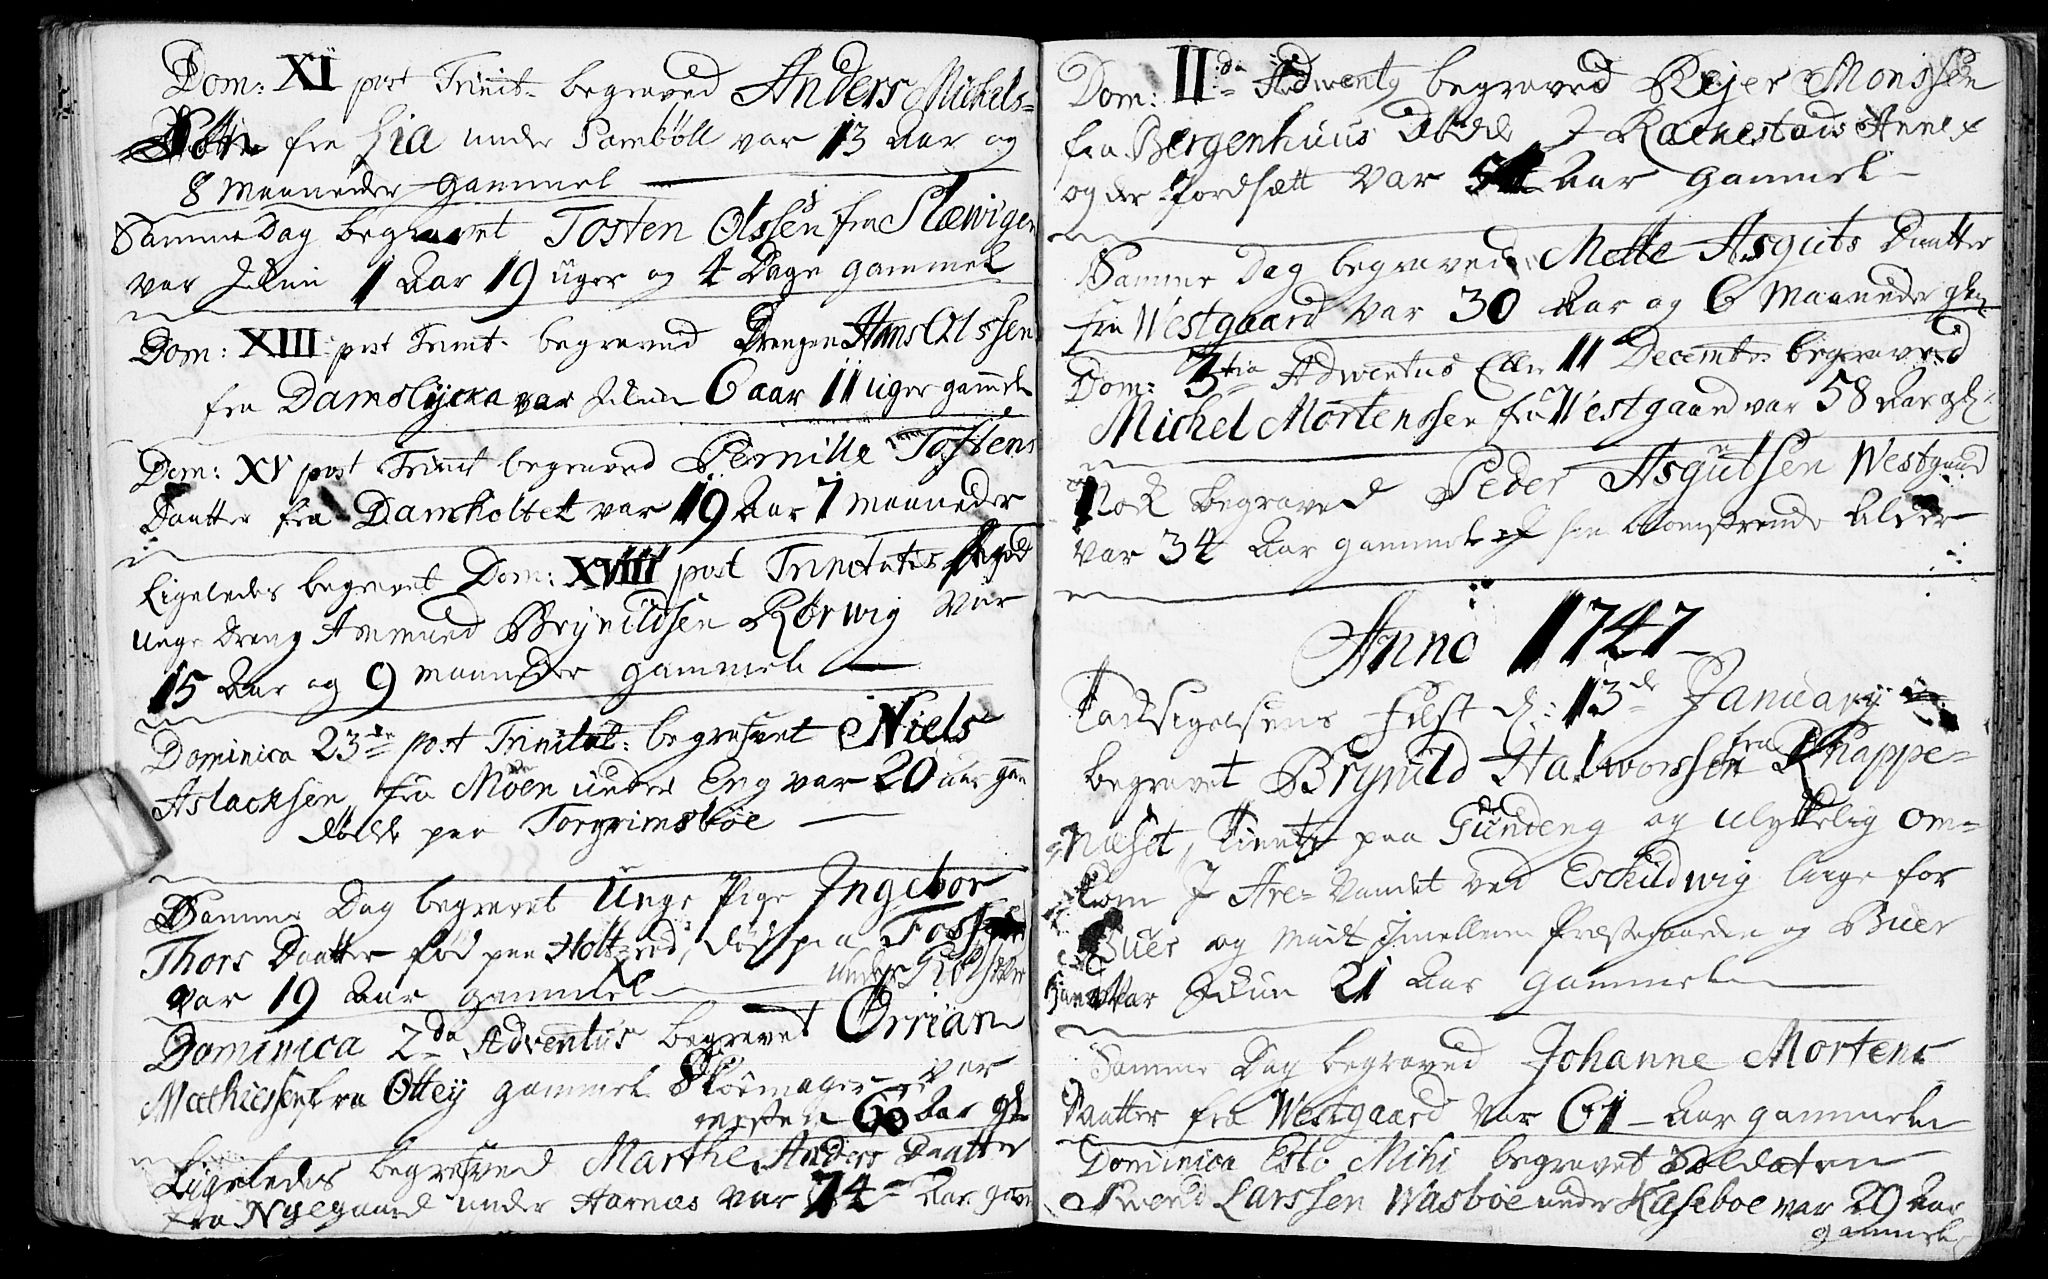 Dom: XI post Trinit. begraved Anders Michels-
Søn fra Lia under Sambøll var 13 Aar og
8 Maaneder gammel
Samme Dag begravet Tosten Olssen fra Slewigen
var Ikun 1 Aar 19 uger og 4 Dage gammel
Dom: XIII post Trinit. begraved Drengen Hans Olssen
fra Damslÿcka var Ikun 6 aar 11 uger gammel
Dom: XV post Trinit begraved Pernille Tostens
Daatter fra Damholtet var 19 Aar 7 Maaneder
Ligeledes begravet Dom: XVIII post Trinitatis
unge Dreng Ammund Brÿnildsen Rørwig var
15 Aar og 9 Maaneder gammel
Dominica 23de post Trinitat: begravet Niels
Aslacksen fra Moen under Eng var 20 aar gam
døde paa Torgrimsbøe
Samme Dag begravet Unge Pige Ingebor
Thors Daatter fød paa Holt, død paa Foss
under
var 19 Aar gammel
Dominica 2da Adventus begravet Ørrian
Mathiessen fra Otteÿ gammel Skoemager var
næsten 60 Aar gl
Ligeledes begraved Marthe Anders Daatter
fra Nÿegaard under Harnæs var 74 Aar gam
Dom: IIda Adventÿ begraved Rejer Monssen
fra Bergenhuus døde I Raknestads Annex
og der Jordsatt var Aar gammel
Samme Dag begraved Mette Asguts Daatter
fra Westgaard var 30 Aar og 6 Maaneder gl
Dom: 3tia Adventus Eller 11 Decembr begraved
Michel Mortenssen fra Westgaard var 58 Aar gl
Nock begraved Peder Asgutsen Westgaard
var 34 Aar gammel i sin blomstrende Alder
Anno 1747
Tacksigelsens Fest d: 13de Januarÿ
begravet Brÿnild Halworssen fra Knappe-
næset, tiente paa Gundeng og ulÿkkelig om-
kom I Are-Vandet ved Eskildwig lige for
Buer og midt Imellem Præstegaarden og Buer
han var Ikun 21 Aar gammel
Samme Dag begraved Johanne Mortens
Daatter fra Westgaard var 61 Aar gammel
Dominica Esto Mihi begravet Soldaten
Swend Larssen Wasbøe under Kaseboe var 29 Aar
gammel